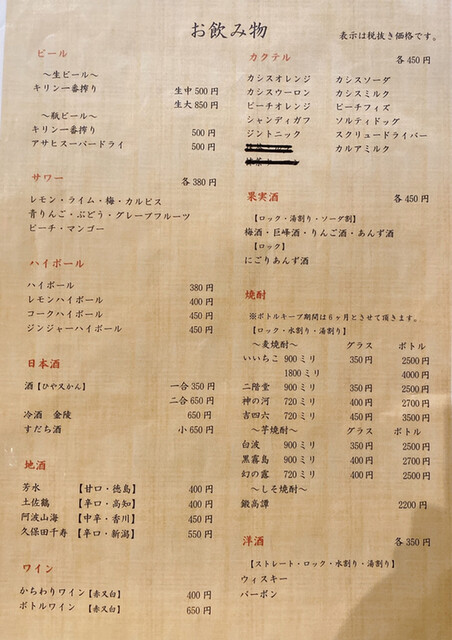 お飲み物
表示は税抜き価格です。
ビール
～生ビール～
キリン一番搾り 生中 500円
生大 850円
～瓶ビール～
キリン一番搾り 500円
アサヒスーパードライ 500円
サワー 各380円
レモン・ライム・梅・カルピス
青りんご・ぶどう・グレープフルーツ
ピーチ・マンゴー
ハイボール
ハイボール 380円
レモンハイボール 400円
コークハイボール 450円
ジンジャーハイボール 450円
日本酒
酒【ひや又かん】 一合 350円
二合 650円
冷酒 金陵 650円
すだち酒 小 650円
地酒
芳水 【甘口・徳島】 400円
土佐鶴 【辛口・高知】 400円
阿波山海 【中辛・香川】 450円
久保田千寿 【辛口・新潟】 550円
ワイン
かちわりワイン【赤又白】 400円
ボトルワイン 【赤又白】 650円
カクテル 各450円
カシスオレンジ カシスソーダ
カシスウーロン カシスミルク
ピーチオレンジ ピーチフィズ
シャンディガフ ソルティドッグ
ジントニック スクリュードライバー
カルアミルク
果実酒 各450円
【ロック・湯割り・ソーダ割】
梅酒・巨峰酒・りんご酒・あんず酒
【ロック】
にごりあんず酒
焼酎
※ボトルキープ期間は6ヶ月とさせて頂きます。
【ロック・水割り・湯割り】
～麦焼酎～ グラス ボトル
いいちこ 900ミリ 350円 2500円
1800ミリ 4000円
二階堂 900ミリ 350円 2500円
神の河 720ミリ 400円 2700円
吉四六 720ミリ 450円 3500円
～芋焼酎～ グラス ボトル
白波 900ミリ 350円 2500円
黒霧島 900ミリ 400円 2700円
幻の露 720ミリ 400円 2500円
～しそ焼酎～
鍛高譚 2200円
洋酒 各350円
【ストレート・ロック・水割り・湯割り】
ウィスキー
バーボン